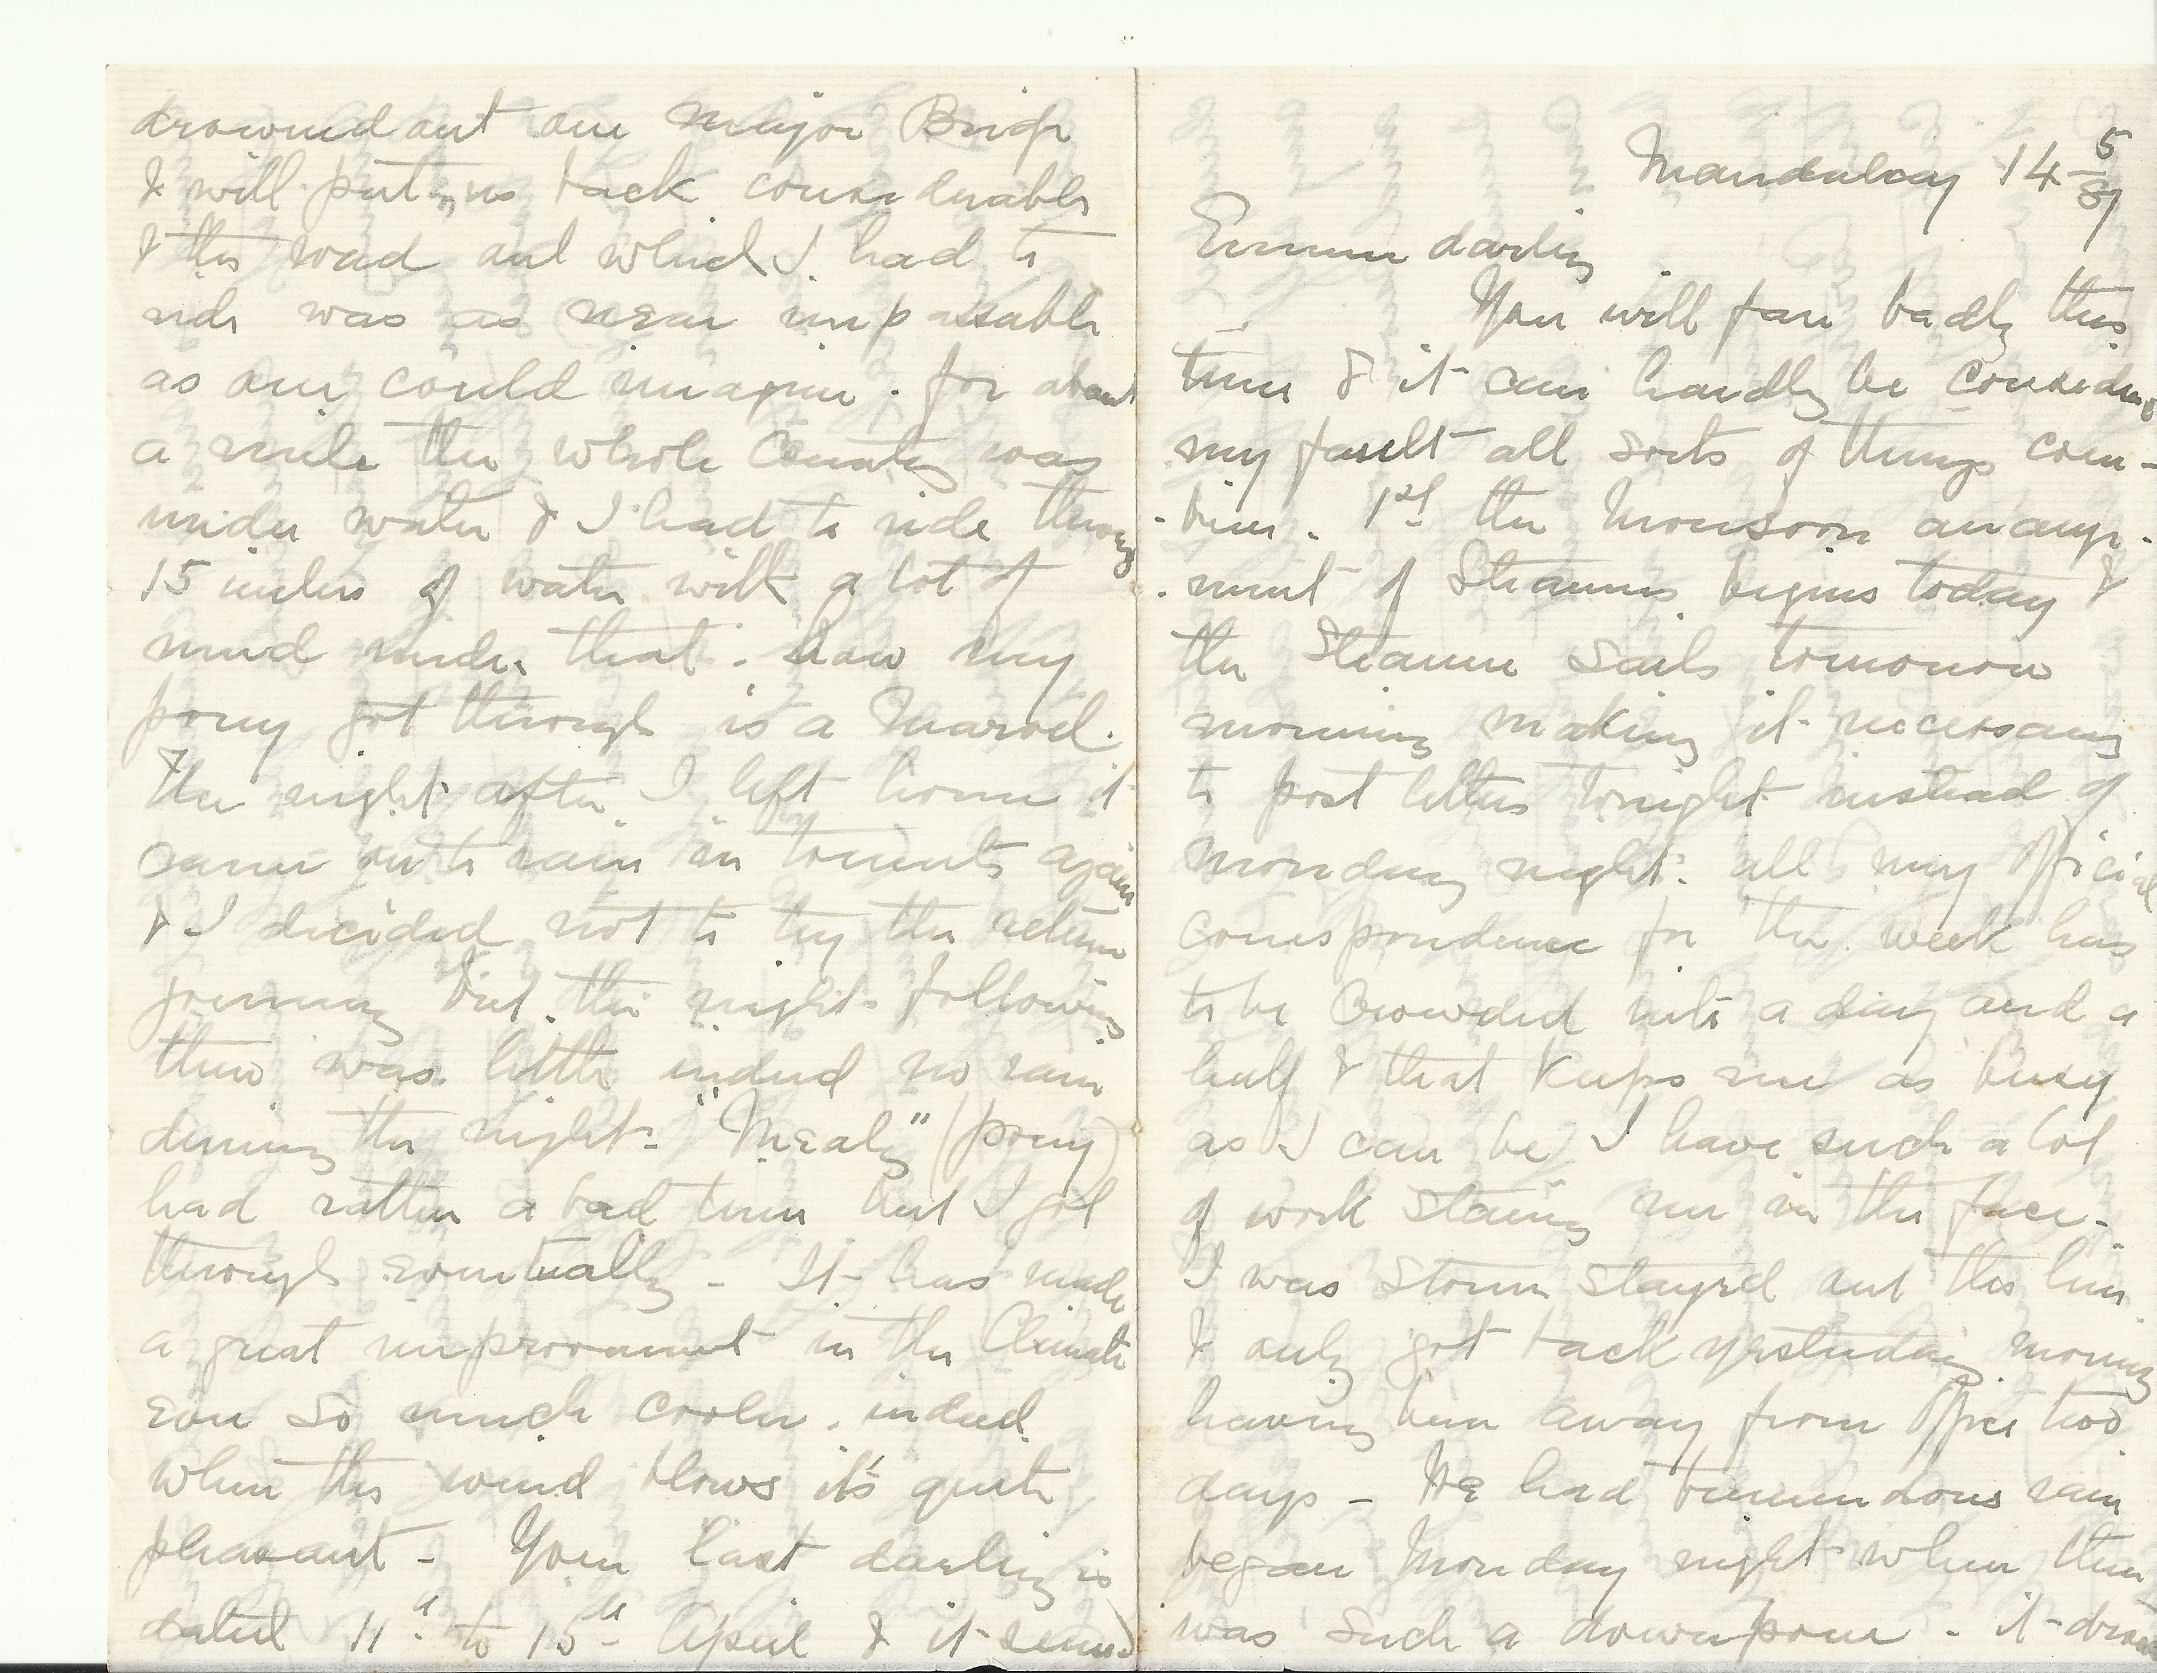 Mandalay 14 5/87
Emma darling
You will fare badly this
time & it can hardly be considered
my fault all sorts of things com-
-bine. 1st the Monsoon arrange-
-ment of Steamers begins today &
the Steamer Sails tomorrow
morning making it necessary
to post letters tonight instead of
Monday night. all my Official
Correspondence for the week has
to be Crowded into a day and a
half & that Keeps me as busy
as I can be I have such a lot
of work Staring me in the face.
I was Storm Stayed out the line
& only got back yesterday morning
having been away from Office two
days - We had tremendous rain
began Monday night when there
was such a downpour - it
drowned out one major Bridge
& will put us back considerable
& the road out which I had to
ride was as near impassable
as one could imagine. for about
a mile the whole Country was
under water & I had to ride through
15 inches of water with a lot of
mud under that. how my
pony got through is a Marvel.
The night after I left home it
came on to rain in torrents again
& I decided not to try the return
journey but the night following
there was little indeed no rain
during the night. "Mealy" (pony)
had rather a bad time but I got
through eventually - It has made
a great improvement in the Climate
ever so much cooler. indeed
when the wind blows it's quite
pleasant - Your last darling is
dated 11th to 15th April & it seems